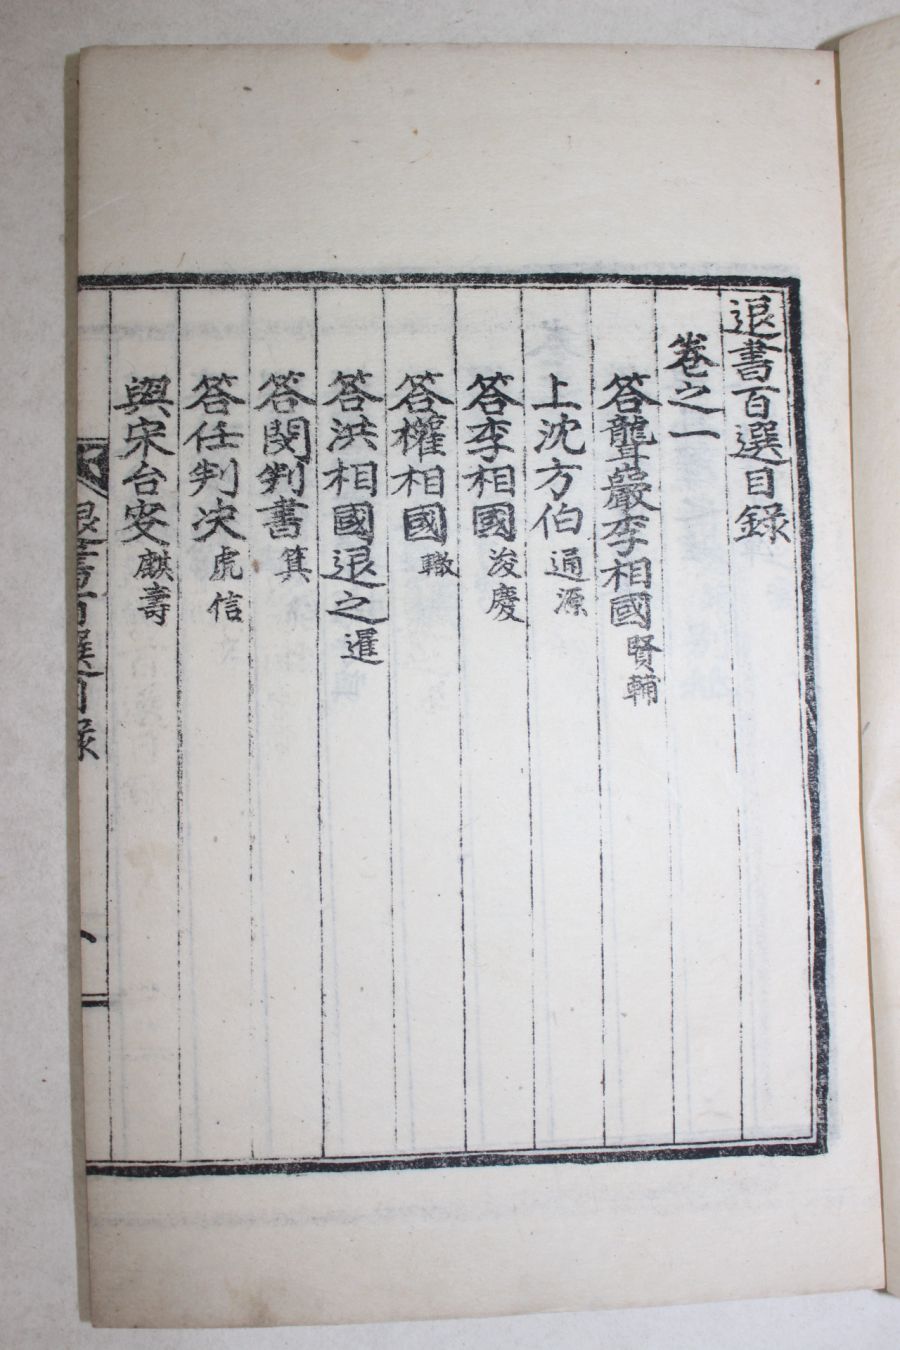 退書百選目錄
卷之一
答聾巖李相國 賢輔
上沈方伯 通源
答李相國 浚慶
答權相國 轍
答洪相國退之 暹
答閔判書 箕
答任判决 虎信
與宋台叟 麒壽
退書百選目錄